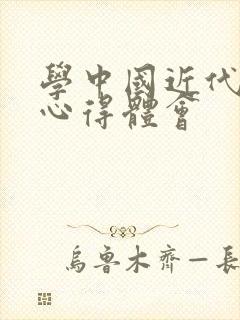 學中國近代
心得體會
烏魯木齊—長